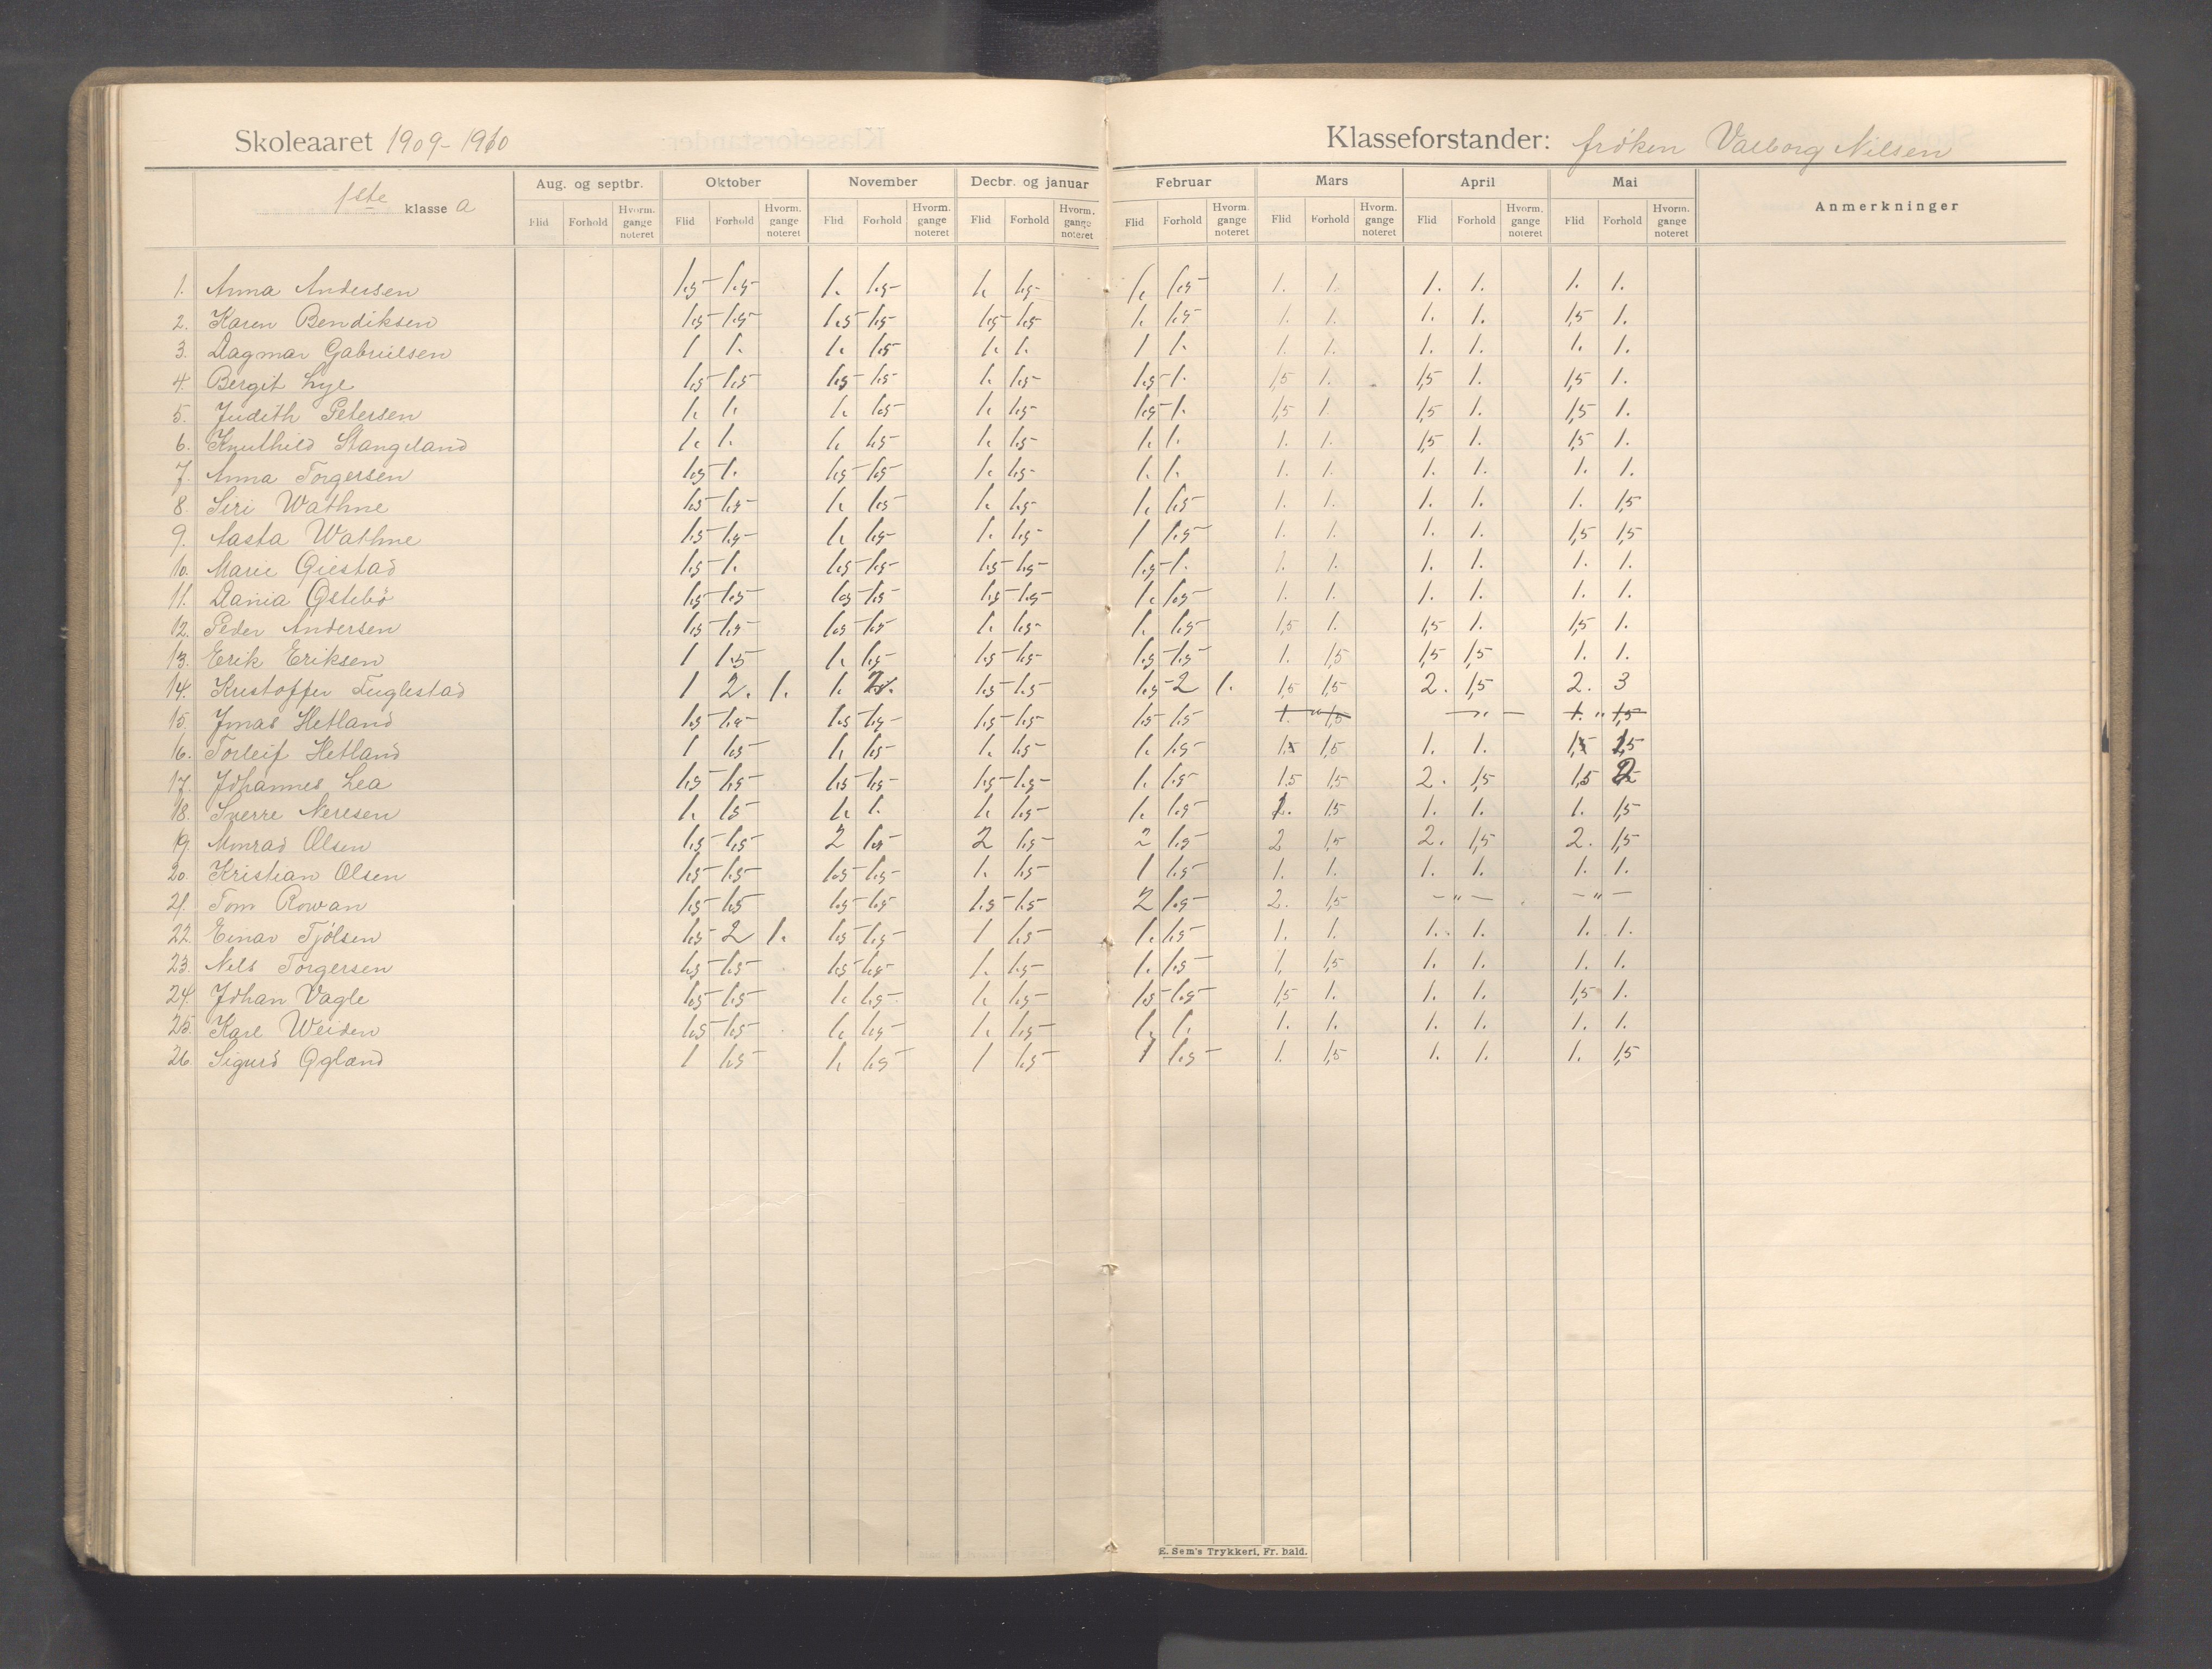 Skoleaaret 1909-1910 Klasseforstander: frøken Valborg Nilsen
1ste klasse a Aug. og septbr. Oktober November Decbr. og januar Februar Mars April Mai Anmerkninger
Flid Forhold Hvorm. gange noteret Flid Forhold Hvorm. gange noteret Flid Forhold Hvorm. gange noteret Flid Forhold Hvorm. gange noteret Flid Forhold Hvorm. gange noteret Flid Forhold Hvorm. gange noteret Flid Forhold Hvorm. gange noteret Flid Forhold Hvorm. gange noteret
1. Anna Andersen 1,5 1,5 1. 1,5 1. 1,5 1. 1,5 1. 1. 1. 1. 1. 1.
2. Karen Bendiksen 1,5 1,5 1,5 1,5 1,5 1,5 1. 1,5 1. 1. 1. 1. 1,5 1.
3. Dagmar Gabrielsen 1 1. 1. 1,5 1. 1. 1 1. 1. 1. 1. 1. 1. 1.
4. Bergit Lye 1,5 1,5 1,5 1,5 1. 1,5 1,5 1. 1,5 1. 1,5 1. 1,5 1.
5. Judith Petersen 1. 1. 1. 1,5 1. 1,5 1,5 1. 1,5 1. 1,5 1. 1,5 1.
6. Knuthild Stangeland 1. 1. 1. 1,5 1. 1,5 1. 1. 1. 1. 1,5 1. 1,5 1.
7. Anna Torgersen 1,5 1. 1,5 1,5 1. 1,5 1. 1. 1. 1. 1. 1. 1. 1.
8. Siri Wathne 1,5 1,5 1. 1,5 1. 1,5 1. 1,5 1. 1. 1. 1. 1. 1,5
9. Aasta Wathne 1,5 1,5 1. 1,5 1. 1,5 1 1,5 1. 1. 1. 1. 1,5 1,5
10. Marie Giestad 1,5 1. 1,5 1,5 1,5 1,5 1,5 1. 1. 1. 1. 1. 1. 1.
11. Dania Østebø 1,5 1,5 1,5 1,5 1,5 1,5 1. 1,5 1. 1. 1. 1. 1. 1.
12. Peder Andersen 1,5 1,5 1,5 1,5 1. 1,5 1. 1,5 1,5 1. 1,5 1. 1,5 1.
13. Erik Eriksen 1 1,5 1. 1,5 1,5 1,5 1,5 1,5 1. 1,5 1,5 1,5 1. 1.
14. Kristoffer Fuglestad 1 2. 1. 1. 2. 1,5 1,5 1,5 2 1. 1,5 1,5 2. 1,5 2. 3
15. Jonas Hetland 1,5 1,5 1,5 1,5 1,5 1,5 1,5 1,5 1. " 1,5 — " — 1. " 1,5
16. Torleif Hetland 1 1,5 1. 1,5 1. 1,5 1. 1,5 1,5 1,5 1. 1. 1,5 1,5
17. Johannes Lea 1,5 1,5 1,5 1,5 1,5 1,5 1. 1,5 1,5 1,5 2. 1,5 1,5 2
18. Sverre Neresen 1. 1,5 1. 1. 1. 1,5 1. 1,5 1. 1,5 1. 1. 1. 1,5
19. Monrad Olsen 1,5 1,5 2 1,5 2 1,5 2 1,5 2 1,5 2. 1,5 2. 1,5
20. Kristian Olsen 1,5 1,5 1,5 1,5 1. 1,5 1 1,5 1. 1. 1. 1. 1. 1.
21. Tom Rowan 1,5 1,5 1,5 1,5 1,5 1,5 2 1,5 2. 1,5 — " — — " —
22. Einar Tjølsen 1,5 2 1. 1,5 1,5 1 1,5 1. 1,5 1. 1. 1. 1. 1. 1.
23. Nils Torgersen 1,5 1,5 1,5 1,5 1. 1,5 1. 1,5 1. 1,5 1. 1. 1. 1.
24. Johan Vagle 1,5 1,5 1. 1,5 1. 1,5 1,5 1,5 1,5 1. 1. 1. 1,5 1.
25. Karl Weiden 1,5 1,5 1. 1,5 1. 1,5 1. 1. 1. 1. 1. 1. 1. 1.
26. Sigurd Ogland 1 1,5 1. 1,5 1 1,5 1 1,5 1. 1,5 1. 1. 1. 1,5
E. Sem's Trykkeri, Fr. hald.